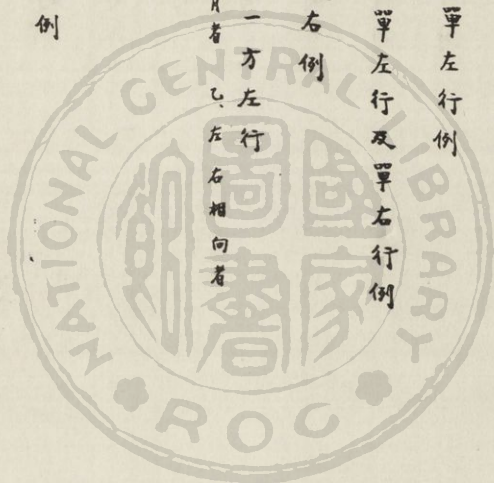 單左行例
單左行及單右行例
右例
一方左行
者 乙、左右相向者
例
NATIONAL CENTRAL LIBRARY
ROC
國家圖書館